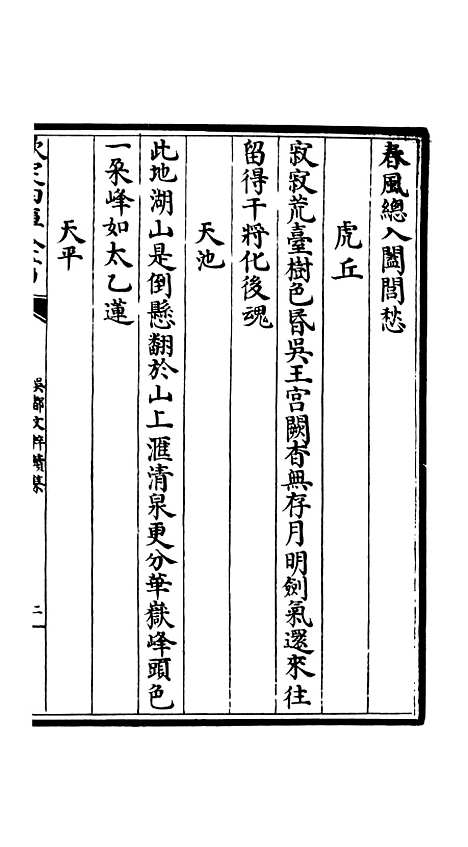 春風總入闔閭愁
虎丘
寂寂荒臺樹色昏吳王宮闕杳無存月明劍氣還來往
留得干將化後魂
天池
此地湖山是倒懸翻於山上滙清泉更分華嶽峰頭色
一朶峰如太乙蓮
天平
吳都文粹續集
二